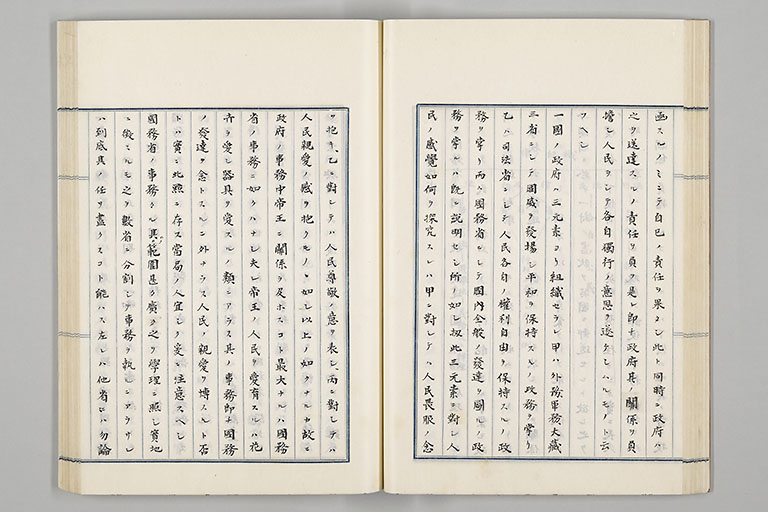 画スルノミニテ自已ノ責任ヲ果タシ此ト同時ニ政府ハ
之ヲ送達スルノ責任ヲ負フ是レ即チ政府其ノ關係ヲ負
擔シ人民ヲシテ各自獨行ノ意思ヲ遂ケシムルモノト云
フヘシ
一國ノ政府ハ三元素ヨリ組織セラレ甲ハ外務軍務大藏
三省ニシテ國威ヲ發揚シ平和ヲ保持スルノ政務ヲ掌リ
乙ハ司法省ニシテ人民各自ノ權利自由ヲ保持スルノ政
務ヲ掌リ丙ハ國務省ニシテ國内全般ノ發達ヲ圖ルノ政
務ヲ掌ルハ既ニ説明セシ所ノ如シ扨此三元素ニ對シ人
民ノ感覺如何ヲ探究スレハ甲ニ對シテハ人民畏服ノ念
ヲ抱キ乙ニ對シテハ人民尊敬ノ意ヲ表シ丙ニ對シテハ
人民親愛ノ感ヲ抱クモノヽ如シ以上ノ如クナルカ故ニ
政府ノ事務中帝王ニ關係ヲ及ホスコト最大ナルハ國務
省ノ事務ニ如クハナシ夫レ帝王ノ人民ヲ愛育スルハ花
卉ヲ愛シ器具ヲ愛スルノ類ニアラス其ノ事務即チ國務
ノ發達ヲ念トスルニ外ナラス人民ノ親愛ヲ博スルト否
トハ實ニ此點ニ存ス當局ノ人宜シク爰ニ注意スヘシ
國務省ノ事務タル其ノ範圍甚タ廣ク之ヲ學理ニ照シ實地
ニ徴スルモ之ヲ數省ニ分割シテ事務ヲ執ルニアラサレ
ハ到底其ノ任ヲ盡クスコト能ハス左レハ他省ニハ勿論